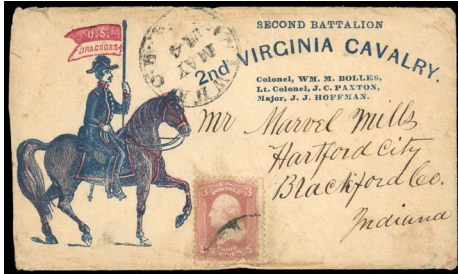 U.S.
DRAGOONS
MAY
SECOND BATTALION
2nd VIRGINIA CAVALRY.
Colonel, WM. M. BOLLES,
Lt. Colonel, J. C. PAXTON,
Major, J. J. HOFFMAN.
Mr Marvel Mills
Hartford City
Blackford Co.
Indiana
3 3